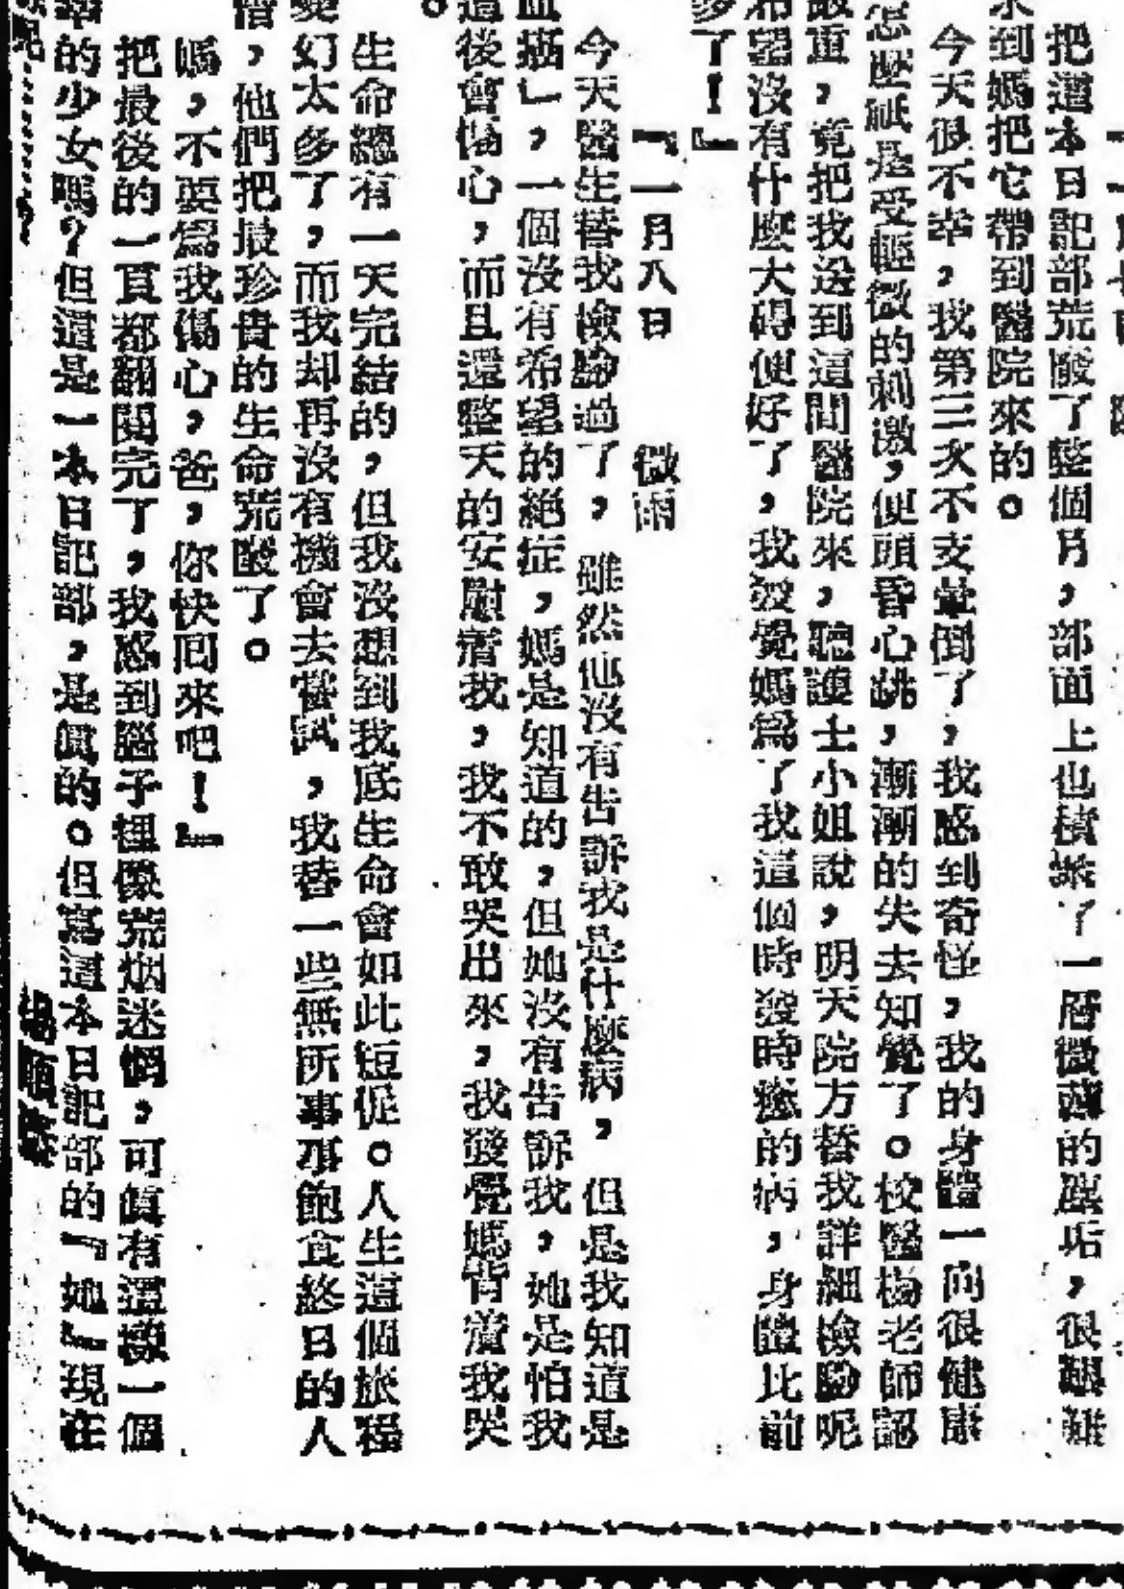 把這本日記部荒廢了整個月，部面上也積聚了一層微薄的塵垢，很艱難
求到媽把它帶到醫院來的。
今天很不幸，我第三次不支暈倒了，我感到奇怪，我的身體一向很健康
怎麼祇是受輕微的刺激，便頭昏心跳，漸漸的失去知覺了。校醫楊老師認
嚴重，竟把我送到這間醫院來，聽護士小姐說，明天院方替我詳細檢驗呢
希望沒有什麼大碍便好了，我發覺媽為了我這個時發時癒的病，身體比前
多了！』
『一月八日　微雨
今天醫生替我檢驗過了，雖然他沒有告訴我是什麼病，但是我知道是
血癌」，一個沒有希望的絕症，媽是知道的，但她沒有告訴我，她是怕我
道後會傷心，而且還整天的安慰着我，我不敢哭出來，我發覺媽背着我哭
。
生命總有一天完結的，但我沒想到我底生命會如此短促。人生這個旅程
變幻太多了，而我却再沒有機會去嘗試，我替一些無所事事飽食終日的人
惜，他們把最珍貴的生命荒廢了。
媽，不要為我傷心，爸，你快回來吧！』
把最後的一頁都翻閱完了，我感到腦子裡像荒烟迷惘，可真有這樣一個
幸的少女嗎？但這是一本日記部，是真的。但寫這本日記部的『她』現在
呢……？